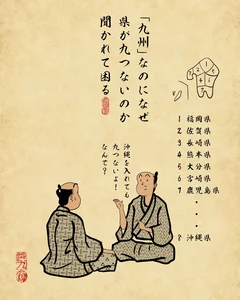 「九州」なのになぜ
県が九つないのか
聞かれて困る
1 福岡県
2 佐賀県
3 長崎県
4 熊本県
5 大分県
6 宮崎県
7 鹿児島県
・
・
・
8 沖縄県
沖縄を入れても
九つないよ！
なんて？